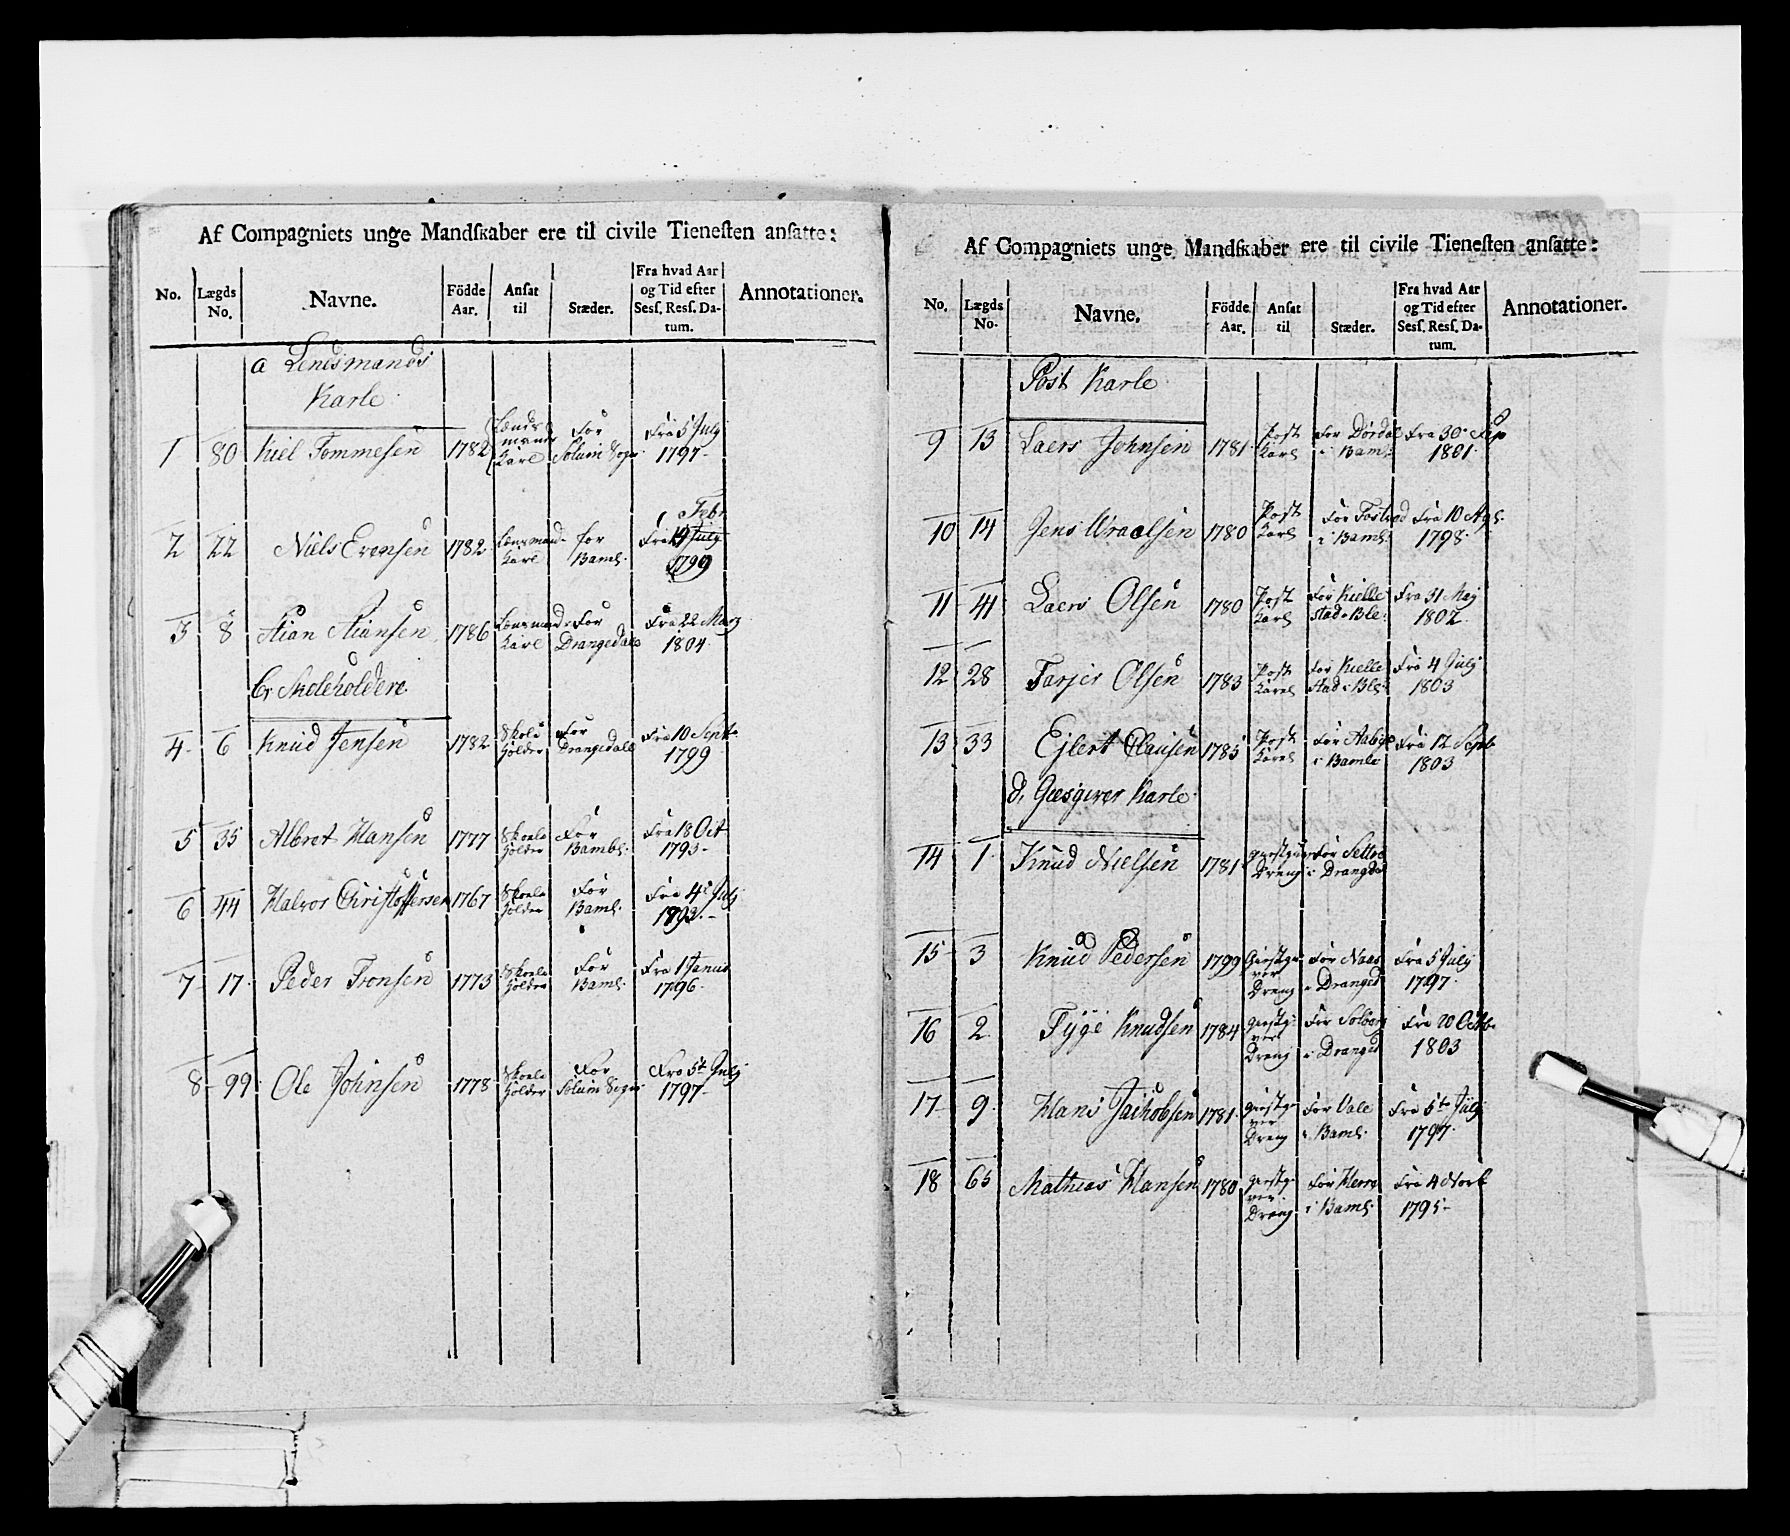 Af Compagniets unge Mandskaber ere til civile Tienesten ansatte:
No. Lægds No. Navne. Födde Aar. Ansat til Stæder. Fra hvad Aar og Tid efter Sess. Ress. Datum. Annotationer.
a Lensmands
Karle
1 80 Kiel Tommesen 1782 Lænds mands Karl For Solum Sogn Fra 5 July 1797
2 22 Niels Evensen 1782 Lænsmand Karl for Bamb: Fra 19 July Febr 1799
3 8 Stian Stiansen 1786 Lænsmand Karl For Drangedahl Fra 22 Marz 1804
b, Skoleholdere
4 6 Knud Jensen 1782 Skole holder For Drangedahl Fra 10 Septr 1799
5 35 Albret Hansen 1777 Skoele holder For Bambl: Fra 18 Oct 1793
6 44 Halvor Christoffersen 1767 Skoele holder For Baml: Fra 4 July 1792
7 17 Peder Tronsen 1773 Skoele holder For Baml: Fra 1 Janua 1796
8 99 Ole Johnsen 1778 Skoele holder For Solum Sogn Fra 5te July 1797
Af Compagniets unge Mandskaber ere til civile Tienesten ansatte:
No. Lægds No. Navne. Födde Aar. Ansat til Stæder. Fra hvad Aar og Tid efter Sess. Ress. Datum. Annotationer.
Post Karle
9 13 Laers Johnsen 1781 Post Karl For Dørdal i Bam: Fra 30 Sep 1801
10 14 Jens Wraalsen 1780 Post Karl For Fostved i Baml: Fra 10 Ags. 1798
11 41 Laers Olsen 1780 Post Karl For Kielle stad i Ble: Fra 31 May 1802
12 28 Tarjer Olsen 1783 Post Karl For Kielle stad i Ble: Fra 4 July 1803
13 33 Ejlert Clausen 1785 Post Karl For Aabye i Bamle Fra 12 Sept 1803
d, Giesgiver Karle
14 1 Knud Nielsen 1781 giestgiver Dreng For i Drangdal
15 3 Knud Pedersen 1799 Giestgi ver Dreng For Naas i Dranged Fra 5 July 1797
16 2 Tyge Knudsen 1784 giestgi ver Dreng For Solberg i Dranged Fra 20 Octbr 1803
17 9 Hans Jaikobsen 1781 giestgi ver Dreng For Vale i Baml: Fra 5te July 1797
18 65 Mathias Hansen 1780 giestgi ver Dreng For Herre i Baml: Fra 4 1795